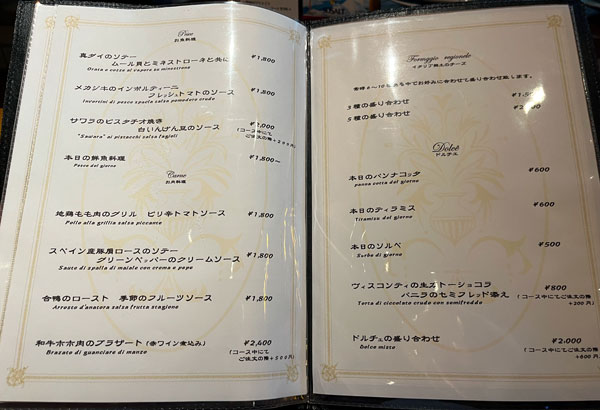 Pesce
お魚料理
真ダイのソテー
ムール貝とミネストローネと共に ¥1,800
Orata e cozze al vapore in minestrone
メカジキのインボルティーニ
フレッシュトマトのソース ¥1,800
Involtini di pesce spada salsa pomodoro crudo
サワラのピスタチオ焼き
白いんげん豆のソース ¥2,000
"Sawara" ai pistacchi salsa fagioli
(コース中にて
ご注文の際+200円)
本日の鮮魚料理 ¥1,800~
Pesce del giorno
Carne
お肉料理
地鶏もも肉のグリル ピリ辛トマトソース ¥1,800
Pollo alla griglia salsa piccante
スペイン産豚肩ロースのソテー
グリーンペッパーのクリームソース ¥1,800
Saute di spalla di maiale con crema e pepe
合鴨のロースト 季節のフルーツソース ¥1,800
Arrosto d'anatora salsa frutta stagione
和牛ホホ肉のブラザート (赤ワイン煮込み) ¥2,400
Brazato di guanciare di manzo
(コース中にて
ご注文の際+500円)
Formaggio regionale
イタリア郷土のチーズ
お好みに合わせて盛り合わせ致します。
3種の盛り合わせ
5種の盛り合わせ
Dolce
ドルチェ
本日のパンナコッタ ¥600
panna cotta del giorno
本日のティラミス ¥600
Tiramisu del giorno
本日のソルベ ¥500
Sorbe di giorno
ヴィスコンティの生ストーショコラ
バニラのセミフレッド添え ¥800
Torta di ciccolato crudo con semifreddo
(コース中にてご注文の際
+200円)
ドルチェの盛り合わせ ¥2,000
Dolce misto
(コース中にてご注文の際
+600円)